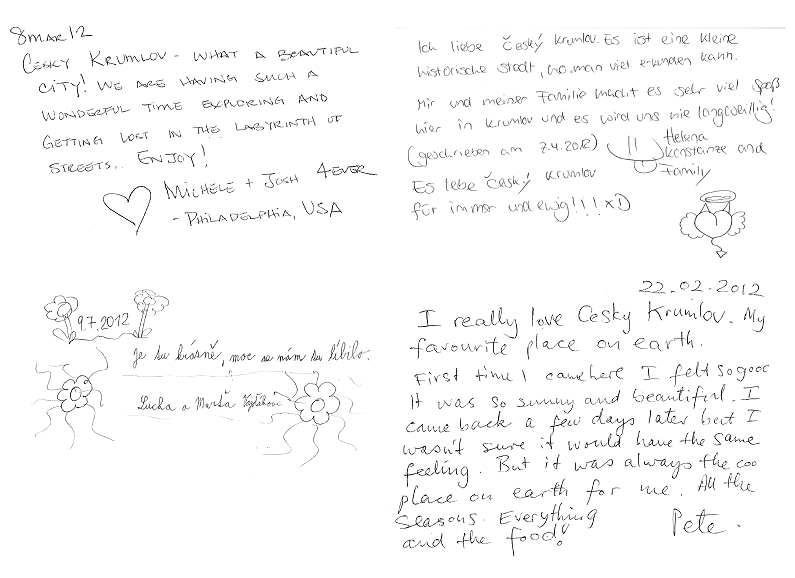 8 MAR 12
CESKY KRUMLOV - WHAT A BEAUTIFUL
CITY! WE ARE HAVING SUCH A
WONDERFUL TIME EXPLORING AND
GETTING LOST IN THE LABYRINTH OF
STREETS.. ENJOY!
MICHELE + JOSH 4EVER
- PHILADELPHIA, USA
Ich liebe Český Krumlov. Es ist eine kleine
historische Stadt, wo man viel erkunden kann.
Mir und meiner Familie macht es sehr viel Spaß
hier in Krumlov und es wird uns nie langweillig!
(geschrieben am 7.4.2012)
Helena
Konstanze and
Family
Es lebe Český Krumlov
für immer und ewig!!! xD
9.7.2012
Je tu krásně, moc se nám tu líbilo.
Lucka a Marta
22.02.2012
I really love Cesky Krumlov. My
favourite place on earth.
First time I came here I felt so good
It was so sunny and beautiful. I
came back a few days later but I
wasn't sure it would have the same
feeling. But it was always the coo
place on earth for me. All the
seasons. Everything
and the food!
Pete.